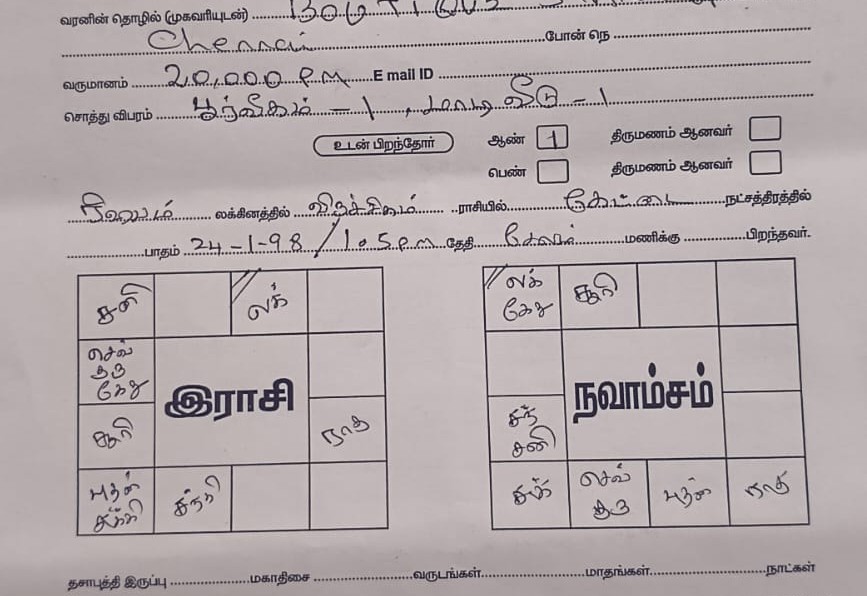 வரனின் தொழில் (முகவரியுடன்)
Chennai போன் நெ
வருமானம் 20,000 PM E mail ID
சொத்து விபரம் பூர்வீகம் - 1, மாடி வீடு - 1
உடன் பிறந்தோர் ஆண் 1 திருமணம் ஆனவர்
பெண் திருமணம் ஆனவர்
லக்கினத்தில் விருச்சிகம் ராசியில் கேட்டை நட்சத்திரத்தில்
பாதம் 24-1-98 / 1.05 pm தேதி சேலம் மணிக்கு பிறந்தவர்.
சனி லக்
லக் கேது சூரி
செவ் குரு கேது
இராசி
நவாம்சம்
சூரி ராகு
சந் சனி
புதன் சுக்கி சந்தி
சுக் செவ் குரு புதன் ராகு
தசாபுத்தி இருப்பு மகாதிசை வருடங்கள் மாதங்கள் நாட்கள்